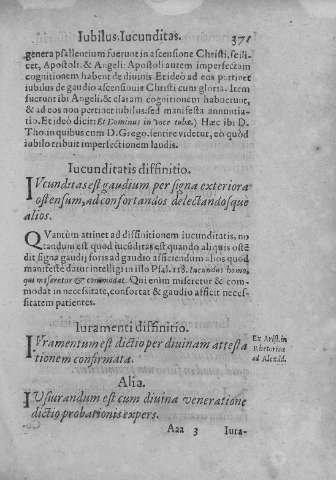 Iubilus. Iucunditas. 371
genera psallentium fuerunt in ascensione Christi, scili-
cet, Apostoli. & Angeli: Apostoli autem imperfectam
cognitionem habent de diuinis Et ideò ad eos pertinet
iubilus de gaudio ascensionis Christi cum gloria. Item
fuerunt ibi Angeli, & claram cognitionem habuerunt,
& ad eos non pertinet iubilus. sed manifesta annuntia-
tio. Et ideò dicit: Et Dominus in voce tubæ.) Hæc ibi D.
Tho. in quibus cum D. Grego. sentire videtur, eò quòd
iubilo tribuit imperfectionem laudis.
Iucunditatis diffinitio.
IVcunditas est gaudium per signa exteriora
ostensum, ad confortandos delectandosque
alios.
QVantum attinet ad diffinitionem iucunditatis, no-
tandum est quod iucūditas est quando aliquis ostē
dit signa gaudij foris ad gaudio afficiendum alios quod
manifestè datur intelligi in illo Psal. 118. Iucundus homo,
qui miseretur & commodat. Qui enim miseretur & com-
modat in necessitate, confortat & gaudio afficit neces-
sitatem patientes.
Iuramenti diffinitio.
IVramentum est dictio per diuinam attesta
tionem confirmata.
Ex Arist. in
Rhetorica
ad Alexād.
Alia.
IVsiurandum est cum diuina veneratione
dictio probationis expers.
Aaa 3 Iura-